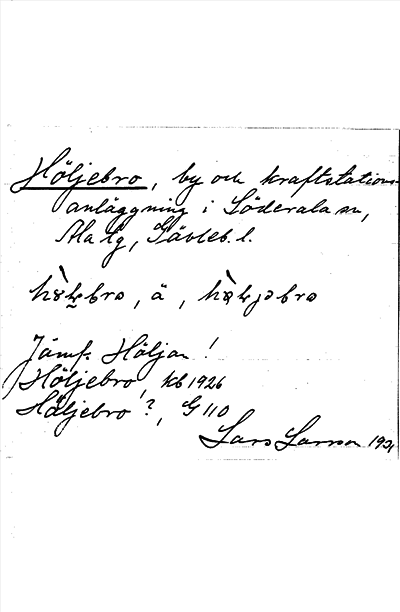 Höljebro, by och kraftstations-
anläggning i Söderala sn,
Ala tg, Gävleb. l.
bro, ä,
Jämf. Höljan!
Höljebro, kb 1926
Höljebro?, G 110
Lars Larsson